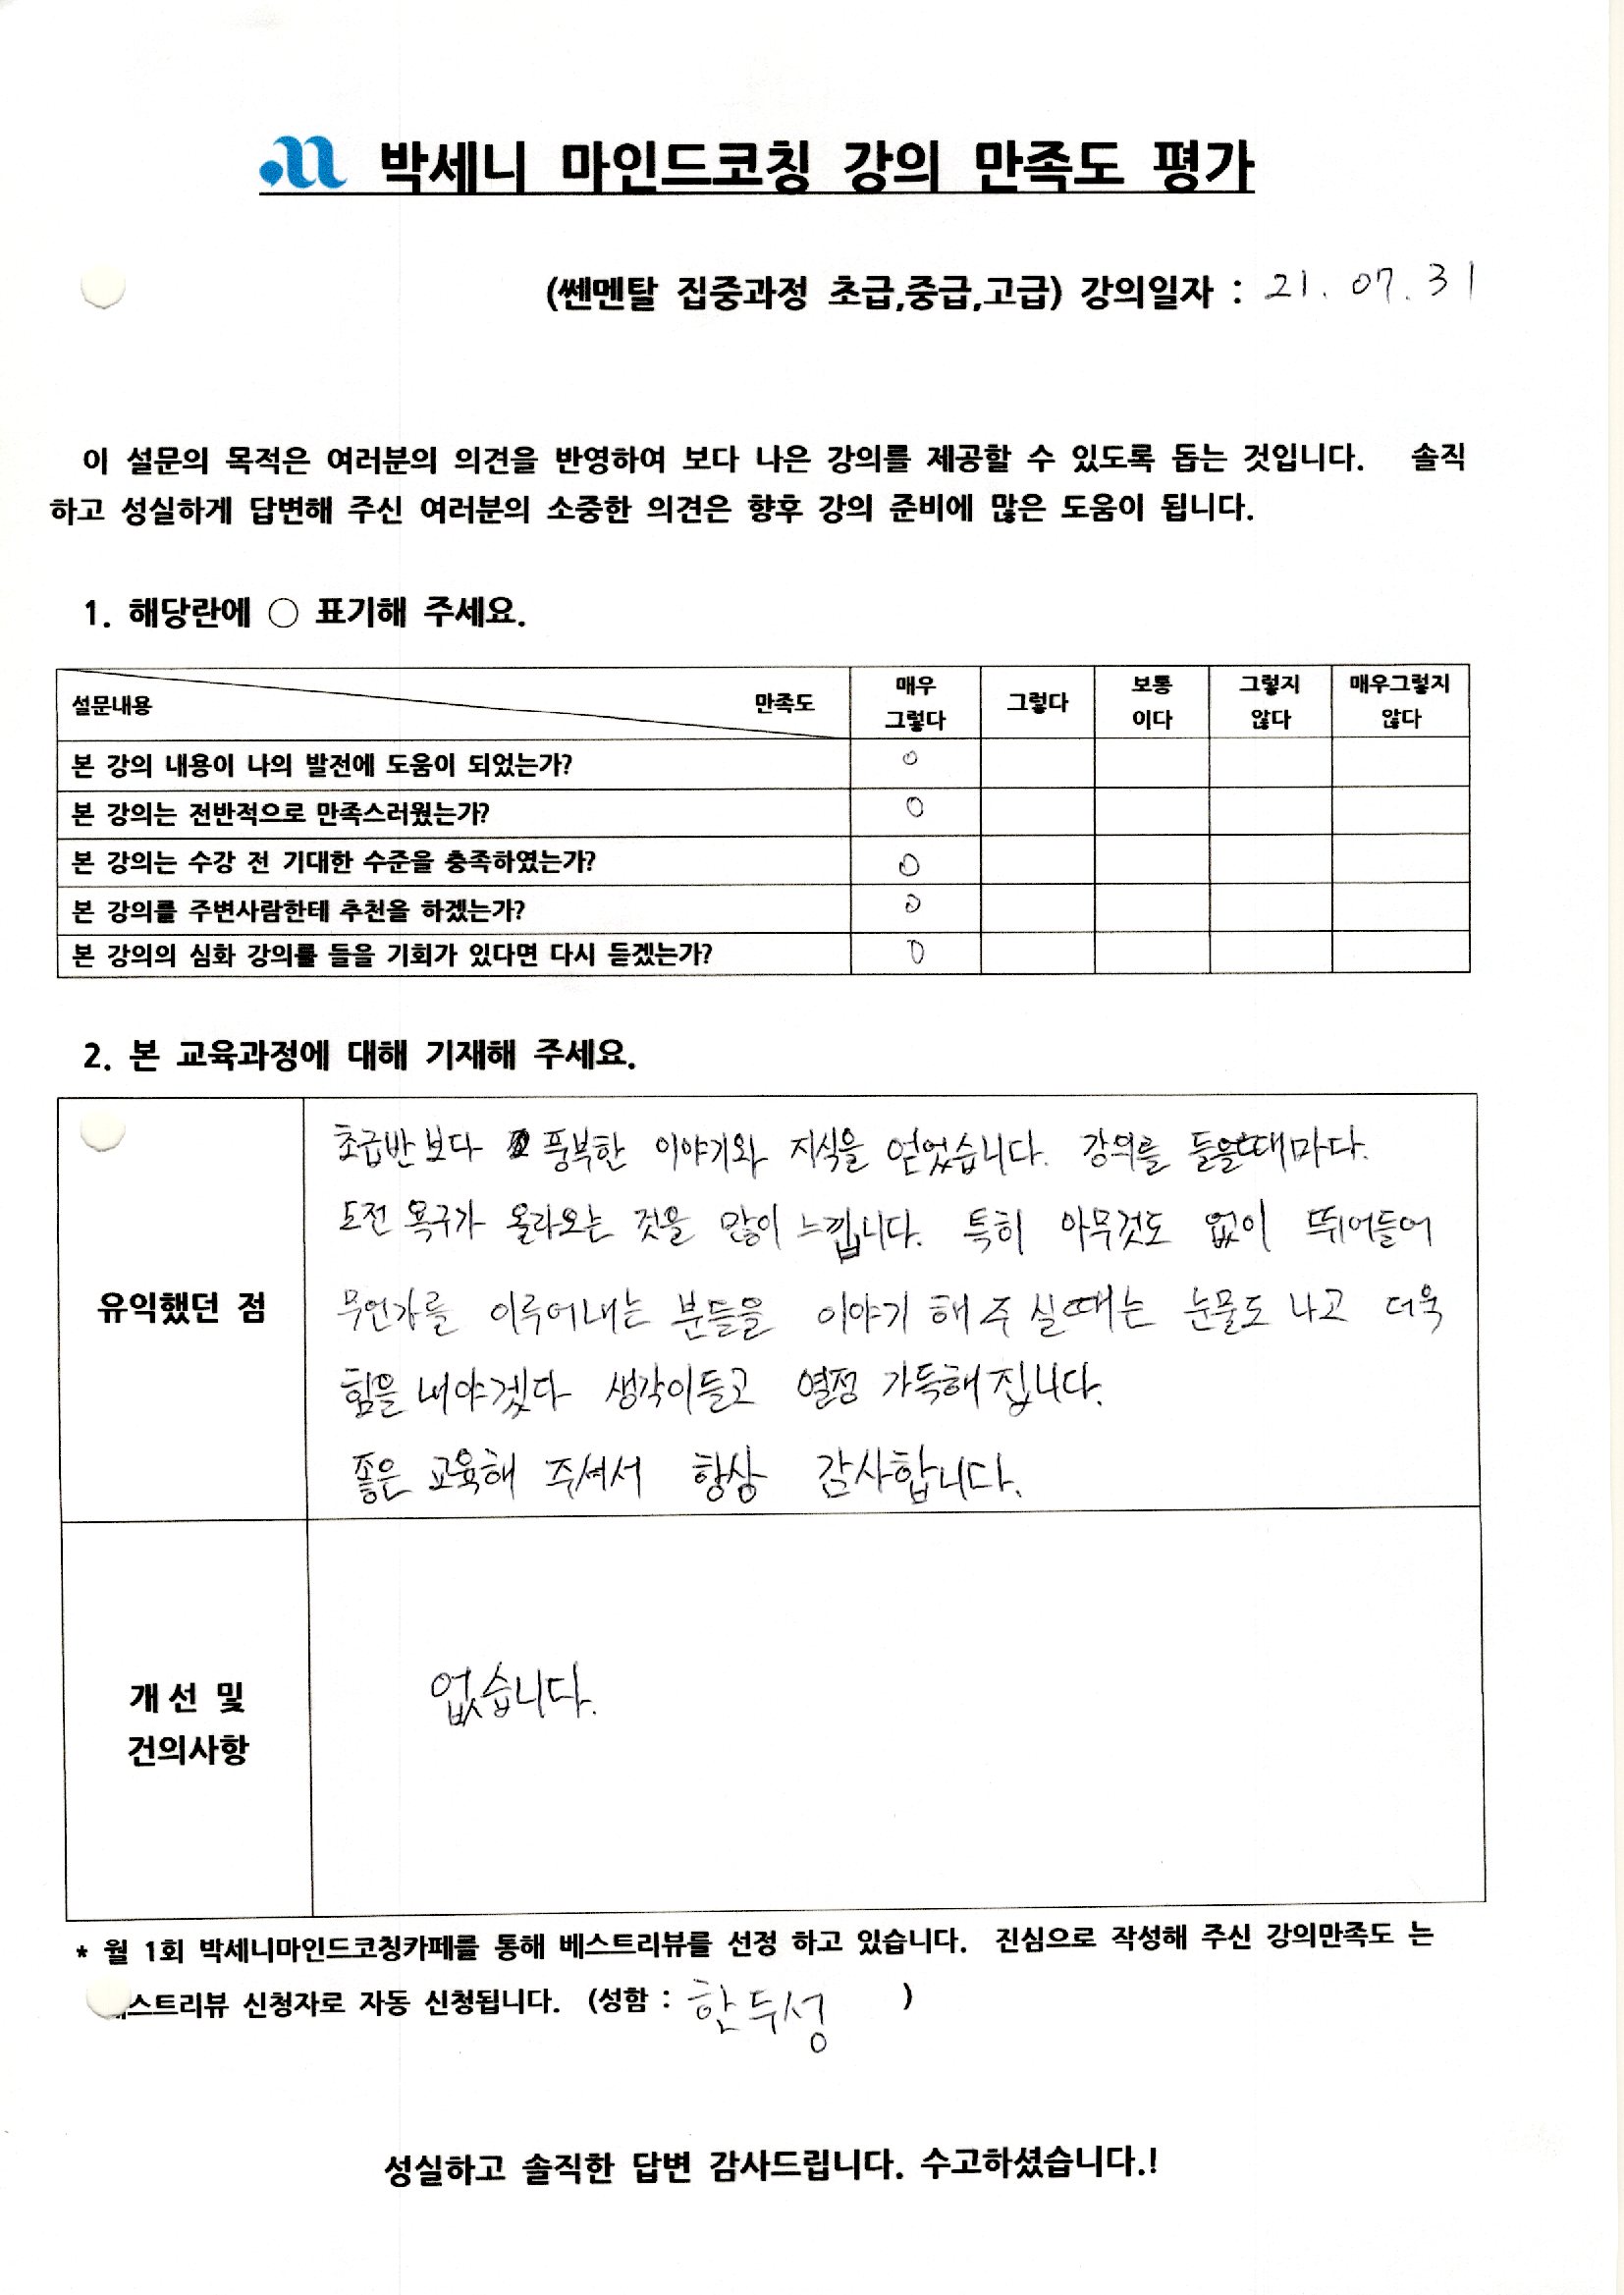 박세니 마인드코칭 강의 만족도 평가
(쎈멘탈 집중과정 초급,중급,고급) 강의일자 : 21. 07. 31
이 설문의 목적은 여러분의 의견을 반영하여 보다 나은 강의를 제공할 수 있도록 돕는 것입니다. 솔직
하고 성실하게 답변해 주신 여러분의 소중한 의견은 향후 강의 준비에 많은 도움이 됩니다.
1. 해당란에 ○ 표기해 주세요.
설문내용 만족도 매우 그렇다 그렇다 보통 이다 그렇지 않다 매우그렇지 않다
본 강의 내용이 나의 발전에 도움이 되었는가? ○
본 강의는 전반적으로 만족스러웠는가? ○
본 강의는 수강 전 기대한 수준을 충족하였는가? ○
본 강의를 주변사람한테 추천을 하겠는가? ○
본 강의의 심화 강의를 들을 기회가 있다면 다시 듣겠는가? ○
2. 본 교육과정에 대해 기재해 주세요.
유익했던 점
초급반 보다 풍부한 이야기와 지식을 얻었습니다. 강의를 들을때마다.
도전 욕구가 올라오는 것을 많이 느낍니다. 특히 아무것도 없이 뛰어들어
무언가를 이루어내는 분들을 이야기 해 주실때는 눈물도 나고 더욱
힘을 내야겠다 생각이들고 열정 가득해집니다.
좋은 교육해 주셔서 항상 감사합니다.
개선 및
건의사항
없습니다.
* 월 1회 박세니마인드코칭카페를 통해 베스트리뷰를 선정 하고 있습니다. 진심으로 작성해 주신 강의만족도 는
스트리뷰 신청자로 자동 신청됩니다. (성함 : 한두성 )
성실하고 솔직한 답변 감사드립니다. 수고하셨습니다.!